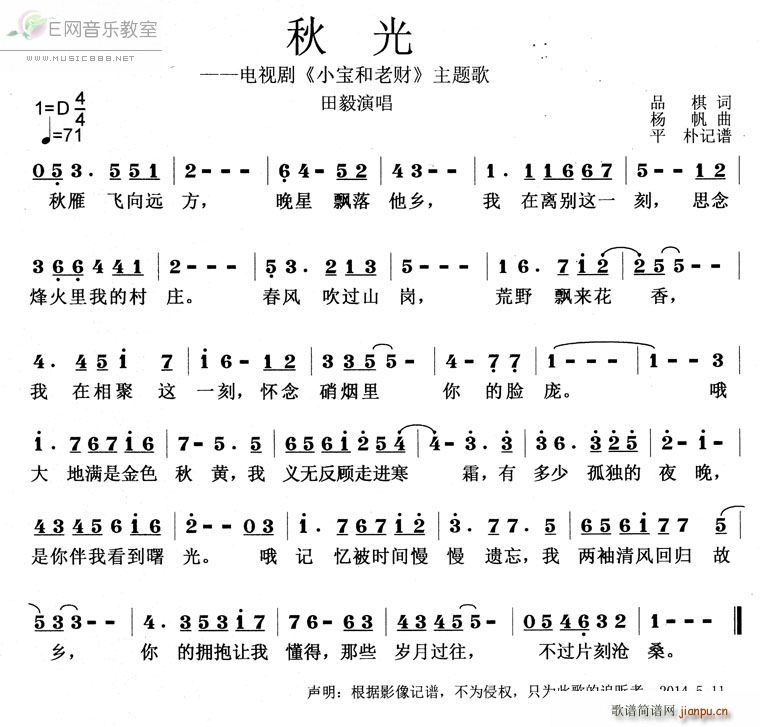 E网音乐教室
WWW.MUSIC888.NET
秋 光
——电视剧《小宝和老财》主题歌
田毅演唱
品 棋 词
杨 帆 曲
平 朴记谱
1=D 4/4
♩=71
0 5 3 . 5 5 1 | 2 - - - | 6 4 - 5 2 | 4 3 - - | 1 . 1 1 6 6 7 | 5 - - 1 2 |
秋雁 飞向远 方， 晚星 飘落 他乡， 我 在离别这一 刻， 思念
3 6 6 4 4 1 | 2 - - - | 5 3 . 2 1 3 | 5 - - - | 1 6 . 7 1 2 | 2 5 5 - - |
烽火里我的村 庄。 春风 吹过山 岗， 荒野 飘来花 香，
4 . 4 5 1 7 | 1 6 - 1 2 | 3 3 5 5 - | 4 - 7 7 | 1 - - - | 1 - - 3 |
我 在相聚 这 一刻，怀念 硝烟里 你 的脸 庞。 哦
1 . 7 6 7 1 6 | 7 - 5 . 5 | 6 5 6 1 2 5 4 | 4 - 3 . 3 | 3 6 . 3 2 5 | 2 - 1 - |
大 地满是金色 秋 黄，我 义无反顾走进寒 霜，有 多少 孤独的 夜 晚，
4 3 4 5 6 1 6 | 2 - - 0 3 | 1 . 7 6 7 1 2 | 3 . 7 7 . 5 | 6 5 6 1 7 7 5 |
是你伴我看到曙 光。 哦 记 忆被时间慢 慢 遗忘，我 两袖清风回归 故
5 3 3 - - | 4 . 3 5 3 1 7 | 7 6 - 6 3 | 4 3 4 5 5 - | 0 5 4 6 3 2 | 1 - - - ‖
乡， 你 的拥抱让我 懂得，那些 岁月过往， 不过片刻沧 桑。
声明：根据影像记谱，不为侵权，只为此歌的追听者 2014-5-11
歌谱简谱网 jianpu.cn